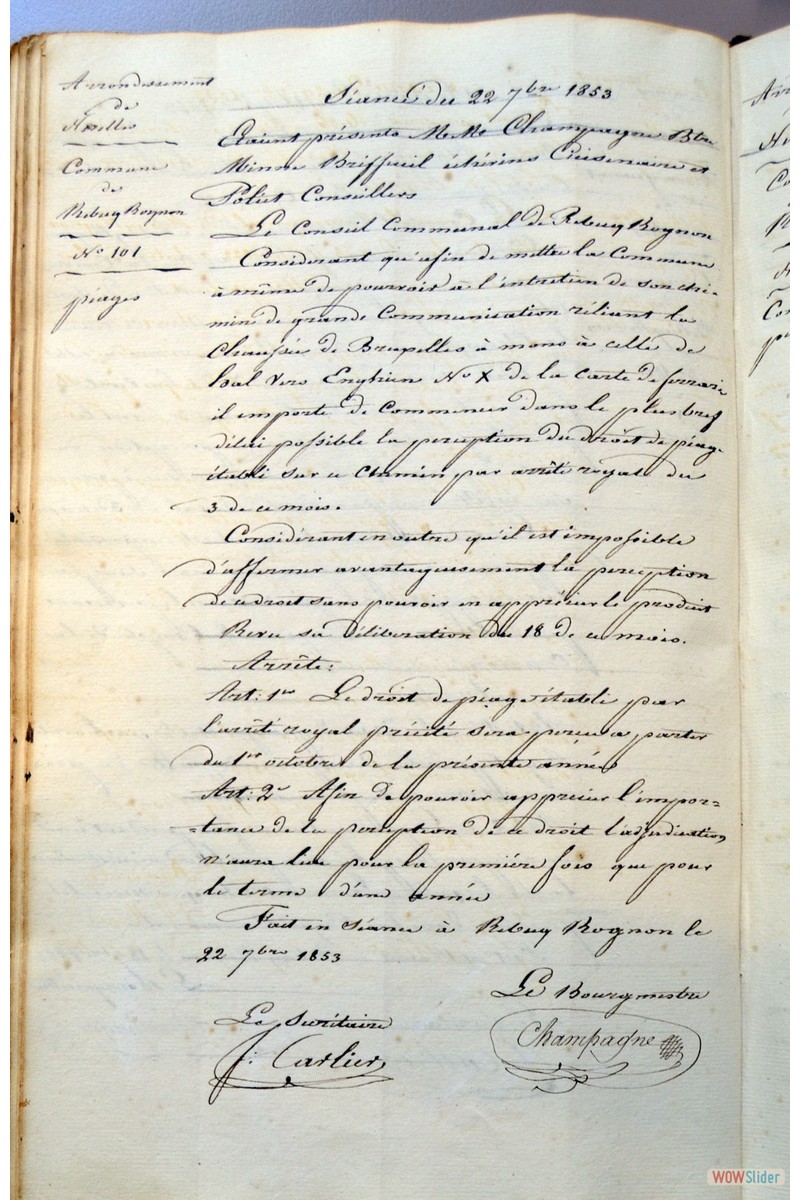 Arrondissement
de
Nivelles
Commune
de
Rebecq Rognon
No 101
péages
Séance du 22 7bre 1853
Etaient présents M.M. Champagne Btre
Minne Briffeuil Cuisenaire et
Poliet Conseillers
Le Conseil Communal de Rebecq Rognon
Considerant qu'afin de mettre la Commune
à même de pourvoir à l'entretien de son che-
min de grande Communication réliant la
Chaussée de Bruxelles à mons à celle de
hal vers Enghien No X de la carte de ferrari
il importe de commencer dans le plus bref
délai possible la perception du droit de péage
établi sur ce chemin par arrêté royal du
3 de ce mois.
Considérant en outre qu'il est impossible
d'affermer avantageusement la perception
de ce droit sans pouvoir en apprécier le produit
Revu sa déliberation du 18 de ce mois.
Arrête:
Art: 1er Le droit de péage établi par
l'arrêté royal précité sera perçu a parter
du 1er octobre de la présente année
Art: 2e Afin de pouvoir apprécier l'impor=
=tance de la perception de ce droit l'adjudication
n'aura lieu pour la première fois que pour
le terme d'une année
Fait en séance à Rebecq Rognon le
22 7bre 1853
Le Bourgmestre
Champagne
Le Secrétaire
J: Carlier
WOWSlider